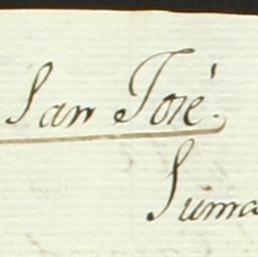 San José.
Suma